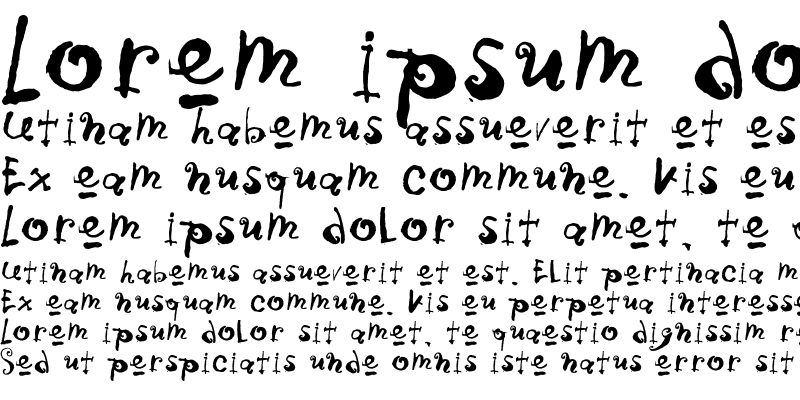 Lorem ipsum do
Utinam habemus assueverit et es
Ex eam nusquam commune. Vis eu
Lorem ipsum dolor sit amet, te
Utinam habemus assueverit et est. Elit pertinacia m
Ex eam nusquam commune. Vis eu perpetua interesse
Lorem ipsum dolor sit amet, te quaestio dignissim re
Sed ut perspiciatis unde omnis iste natus error sit